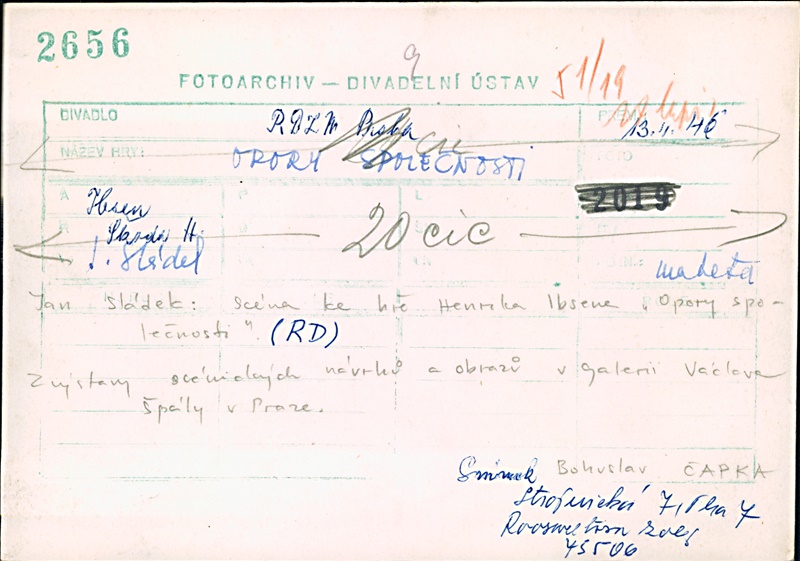 2656
9
FOTOARCHIV — DIVADELNÍ ÚSTAV
51/19
DIVADLO
RDZN Praha
13.4.46
NÁZEV HRY:
OPORY SPOLEČNOSTI
2019
A P L
Ibsen
R
Škoda H.
20 cic
J. Sládek
maketa
Jan Sládek: scéna ke hře Henrika Ibsena „Opory spo-
lečnosti". (RD)
Z výstavy scénických návrhů a obrazů v Galerii Václava
Špály v Praze.
Snímek Bohuslav ČAPKA
Strojnická 7, Pha 7
45506